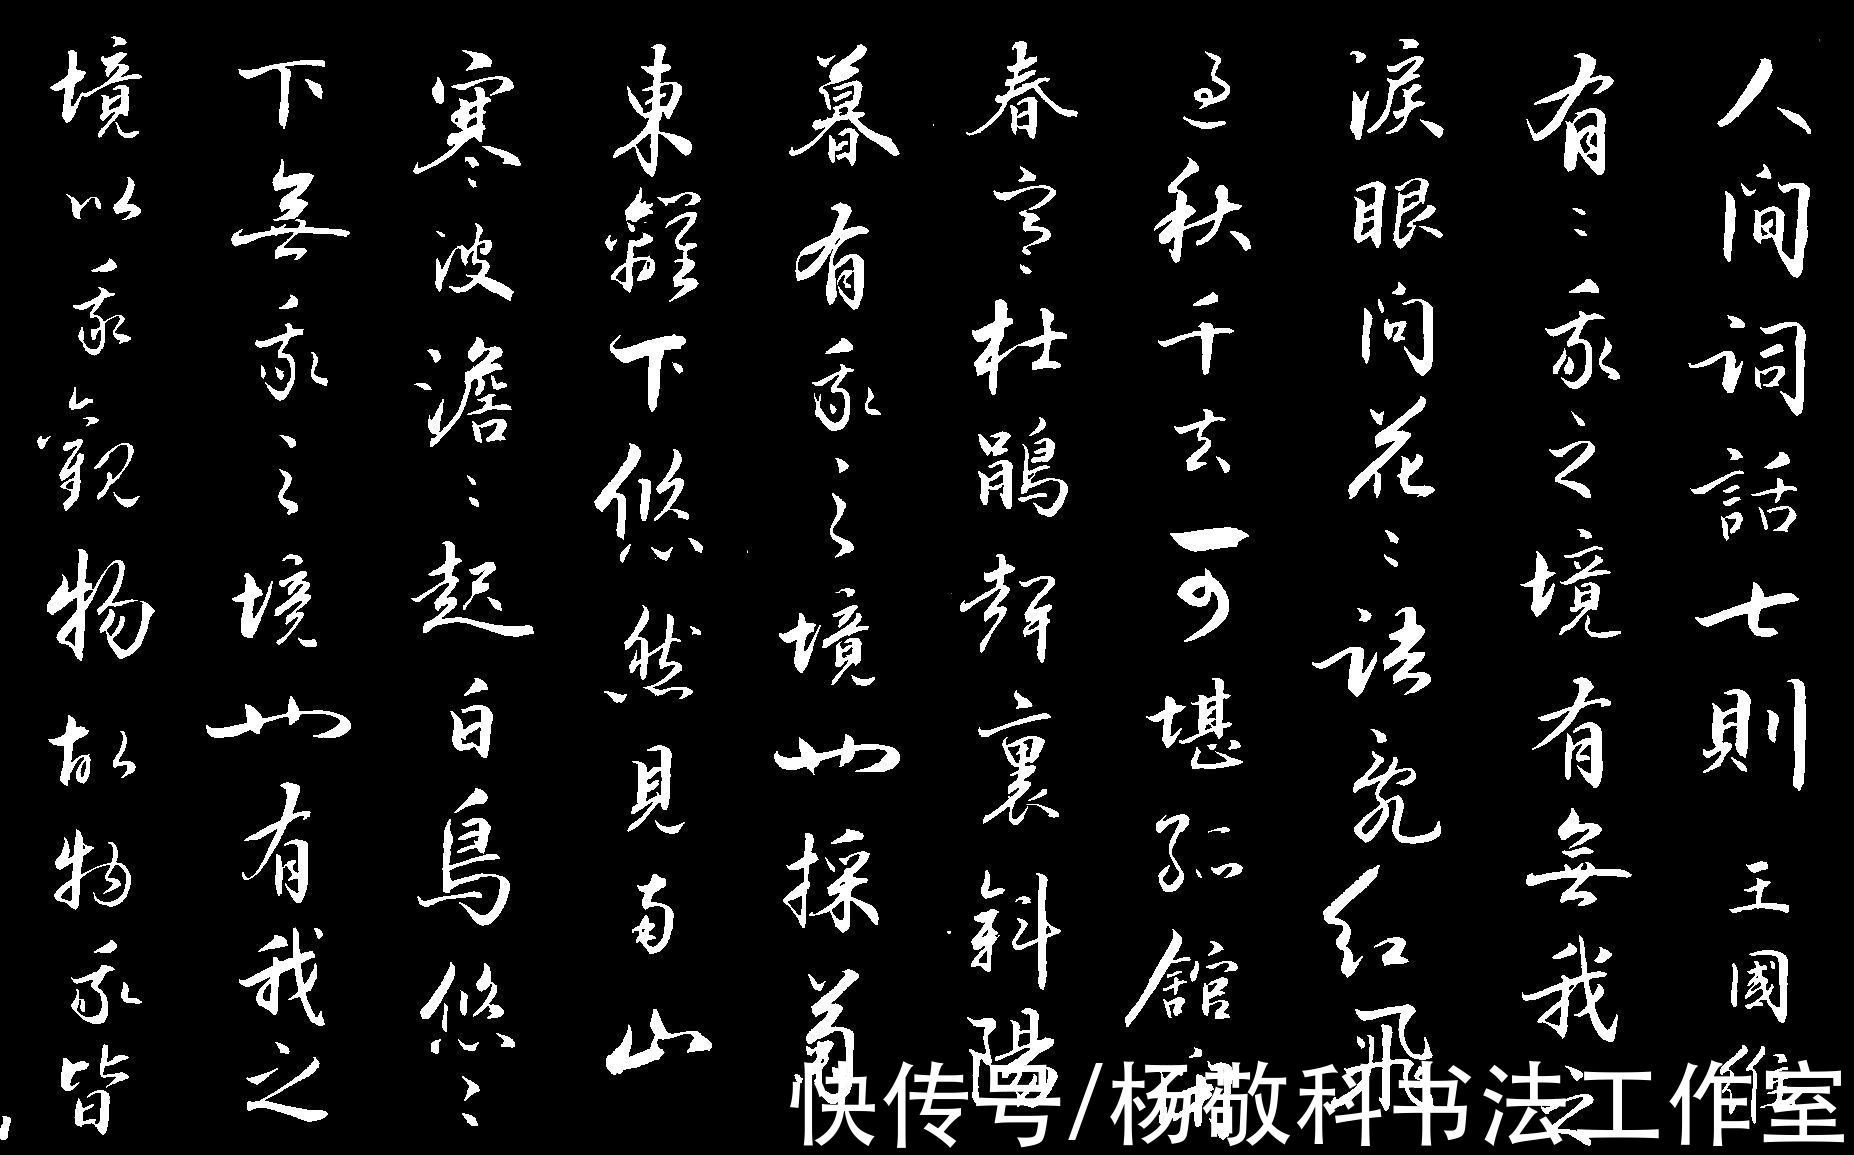 人間詞話七則 王國維
有〻我之境有無我之
淚眼問花〻語亂紅飛
過秋千去可堪孤館
春寒杜鵑聲裏斜陽
暮有我之境也採菊
東籬下悠然見南山
寒波澹〻起白鳥悠〻
下無我之境也有我之
境以我觀物故物我皆
快传号/杨敬科书法工作室